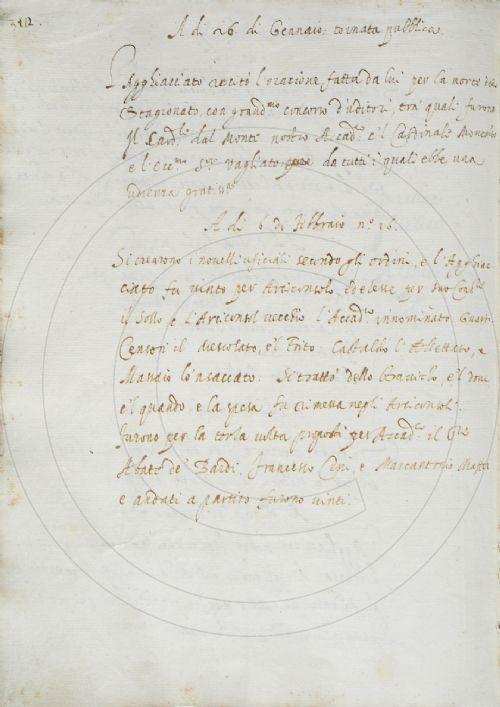 342.
A di 26. di Gennaio: tornata pubblica.
L'Agghiacciato recitò l'orazione fatta da lui per la morte dello
Stagionato, con grand.mo concorso d'uditori tra quali furono
Il Card.le dal Monte nostro Accad.co e'l Cardinale
e l'Ecc.mo Sre. da tutti i quali ebbe una
udienza grat.ma
A di 6 di Febbraio n.o 16.
Si crearono i novelli ufficiali secondo gli ordini, e l'Agghiac-
ciato fu vinto per Arciconsolo, ed elesse per suo Cons.re
il Sollo e l'Arciconsol vecchio l'Accad.co innominato Guarini
Censori il mescolato, e'l Trito Castaldo l'
Massaio lo'nsaccato. Si trattò dello Stravizzo, e'l dove
e'l quando e la spesa fu rimessa negli Arciconsoli.
Furono per la terza volta proposti per Accad.ci il
Abate de' Bardi, Francesco Cini, e Marcantonio
e andati a partito furono vinti.